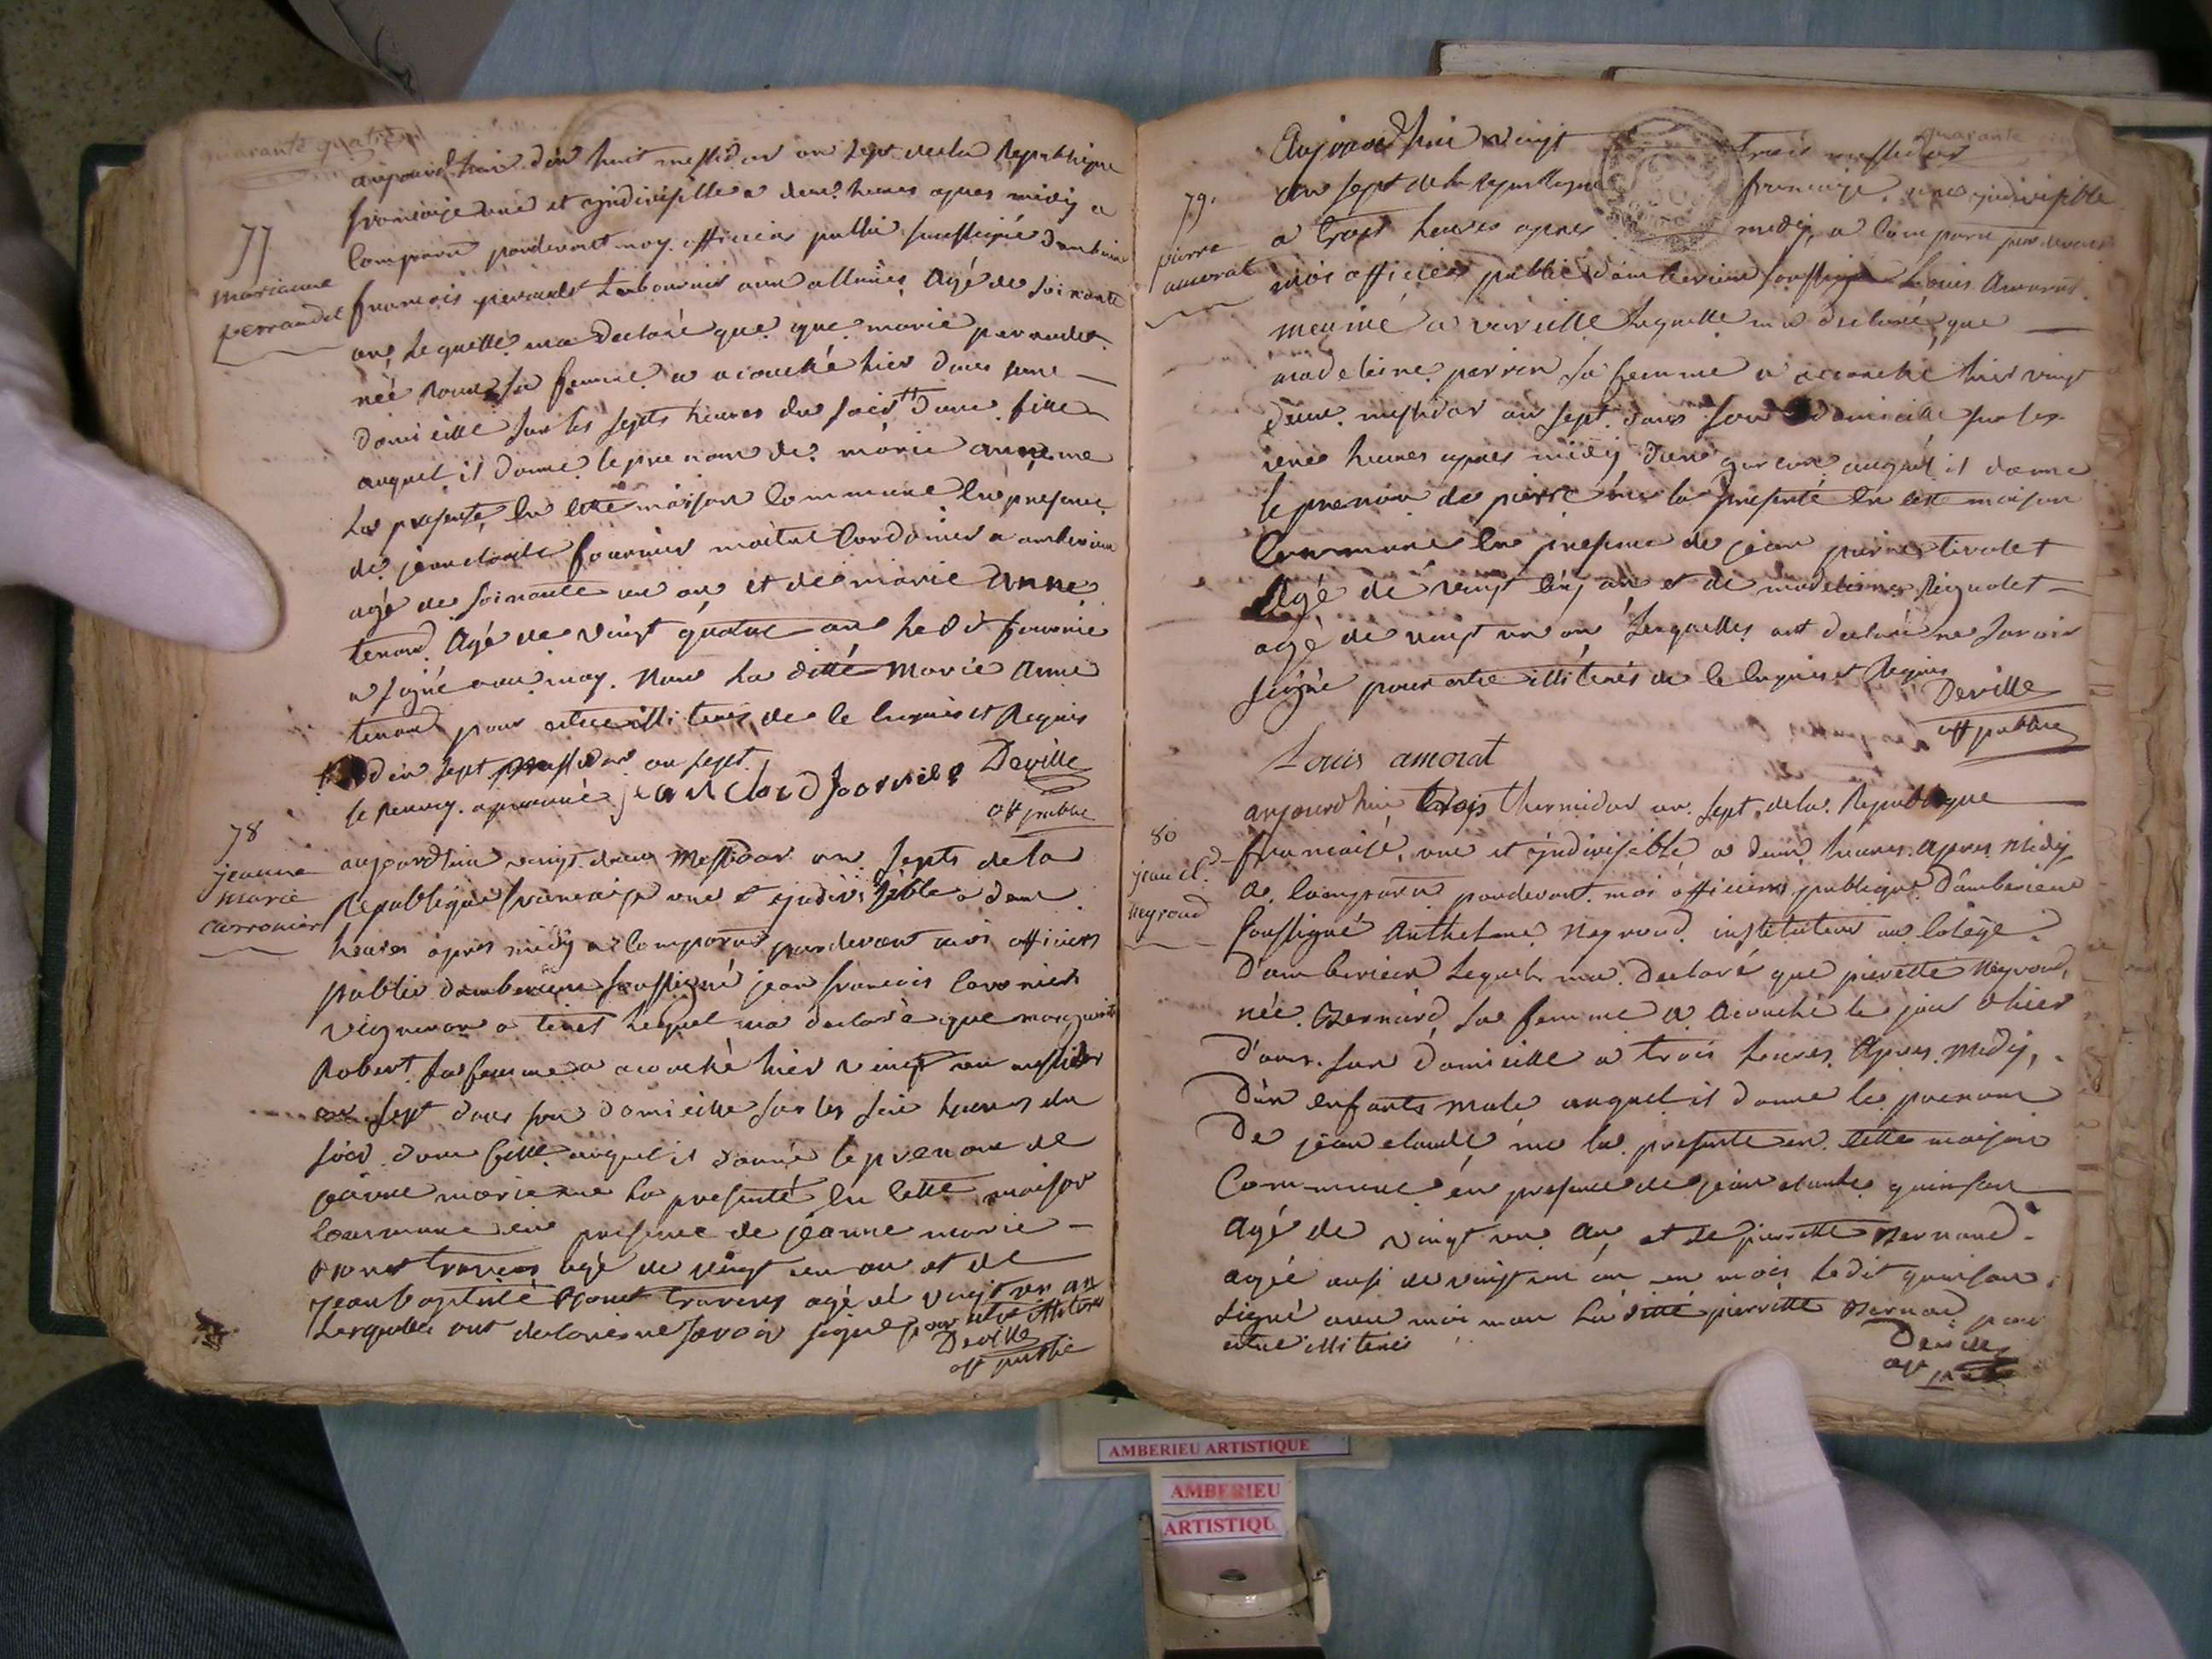 quarante quatrieme
aujourd'hui dix huit messidor an sept de la Republique
francaise une et jndivisible a deux heures apres midy a
comparu pardevant moy officier public soussigné dambrieu
77
marianne
perraudet
francois peraudet Laboureur aux allimes agé de soixante
ans Lequelle ma declaré que que marie peraudet
née Roux sa femme a acouché hier dans sone
domicille sur les septs heures du soir †† dune fille
auquel il donne le pre nom de marie anne me
La presenté en cette maison commune En presence
de jean claude fournier maitre Cordonier a amberieu
agé de soixante un an et de marie anne
tenand Agé de vingt quatre ans Le dit fournie
a signé avec moy. Non La ditte Marie Anne
tenand pour estre illiterés de le Enquis et Requis
dix sept messidor an sept
le Renvoy aprouvé jean claud foornier Deville
off public
78
jeanne
marie
carronier
aujourdhui vingt deux Messidor an septs de la
Republique francaise une et jndivisible a deux
heures apres midy a Comparu pardevant moi officiers
public damberieu soussigné jean francois Caronier
vigneron a tiret Lequel ma declaré que marguerite
Robert sa femme a acouché hier vingt un messidor
an sept dans son domicille sur les six heures du
soir dune fille auquel il donne le prenom de
jeanne marie me La presenté En Cette maison
Commune en presence de jeanne marie
Bonet travers agé de vingt un an et de
jean baptiste Bonet travers agé de vingt un an
Lesquelles ont declarés ne savoir signé pour estre illiteres
Deville
off public
quarante
Aujourdhui vingt trois messidor
an sept de la republique francaise une jndivisible
79.
pierre
amorat
a trois heures apres midy, a Comparu pardevant
moi officier public damberieu soussigné Louis Amorat
meunié a vareille Lequelle ma declaré que
madeleine perrin sa femme a acouché hier vingt
deux messidor an sept dans son domicille sur les
heures apres midy d'un garcon auquel il donne
le prenom de pierre me la presenté En cette maison
Commune En presence de jean pierre tivolet
Agé de vingt an et de madeleine Rignolet
agé de vingt un an Lesquelles ont declaré ne savoir
signé pour estre illiterés de le Enquis et Requis
Deville
off public
Louis amorat
aujourdhui trois thermidor an sept de la Republique
80
jean cl.
negroud
francaise, une et jndivisible a deux heures apres midy
a Comparu pardevant moi officiers publique D'amberieux
soussigné Anthelme Negroud instituteur au Colege
d'amberieux Lequel ma declaré que pierette Negroud,
née Bernard sa femme a acouché le jour d'hier
dans son domicille a trois heures Apres Midy,
d'un enfants male auquel il donne le prenom
De jean claude me la presenté en Cette maison
Commune en presence de jean claude quinson
Agé de vingt un an et de pierrette Bernard
agée ausi de vingt un an un mois Ledit quinson
signé avec moi non La ditte pierrette Bernard pour
estre illiterés
Deville
off
AMBERIEU ARTISTIQUE
AMBERIEU
ARTISTIQU